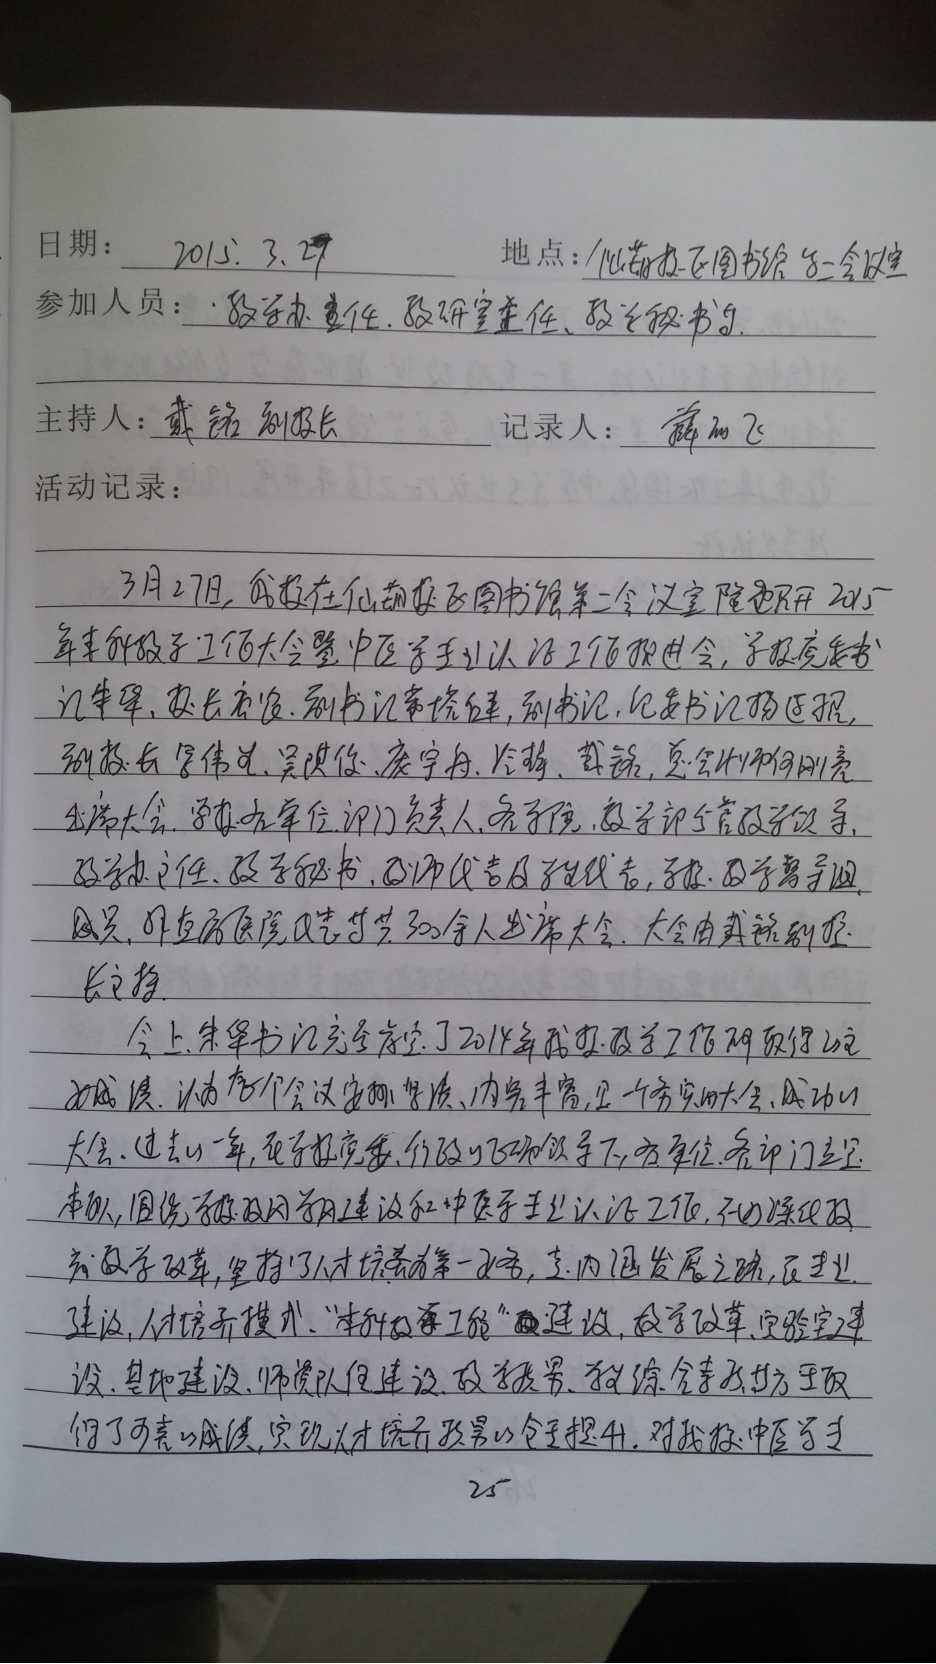 日期：2015.3.27 地点：仙葫校区图书馆第二会议室
参加人员：教学办主任、教研室主任、教学秘书等.
主持人：戴铭副校长 记录人：薛 飞
活动记录：
3月27日，我校在仙葫校区图书馆第二会议室隆重召开2015
年本科教学工作大会暨中医学专业认证工作推进会，学校党委书
记朱华、校长 、副书记 ，副书记、纪委书记杨 ，
副校长 伟 、吴琪俊、庞宇舟、冷静、戴铭，总会计师何刚亮
出席大会. 学校各单位部门负责人、各学院、教学部分管教学领导、
教学办主任、教学秘书、教师代表及学生代表，学校教学督导组
成员，非直属医院代表等共300余人出席大会. 大会由戴铭副校
长主持.
会上，朱华书记充分肯定了2014年我校教学工作所取得的主
要成绩. 认为整个会议安排 、内容丰富，是一个务实的大会、成功的
大会. 过去的一年，在学校党委、行政的正确领导下，各单位、各部门立足
本职，围绕学校 建设和中医学专业认证工作，不断深化教
育教学改革，坚持了人才培养为第一要务，走内涵发展之路，在专业
建设，人才培养模式、“本科教学工程”建设，教学改革、实验室建
设、基地建设、师资队伍建设、教学质量、学生综合素质等方面取
得了可喜的成绩，实现人才培养质量的全面提升. 对我校中医学专
25